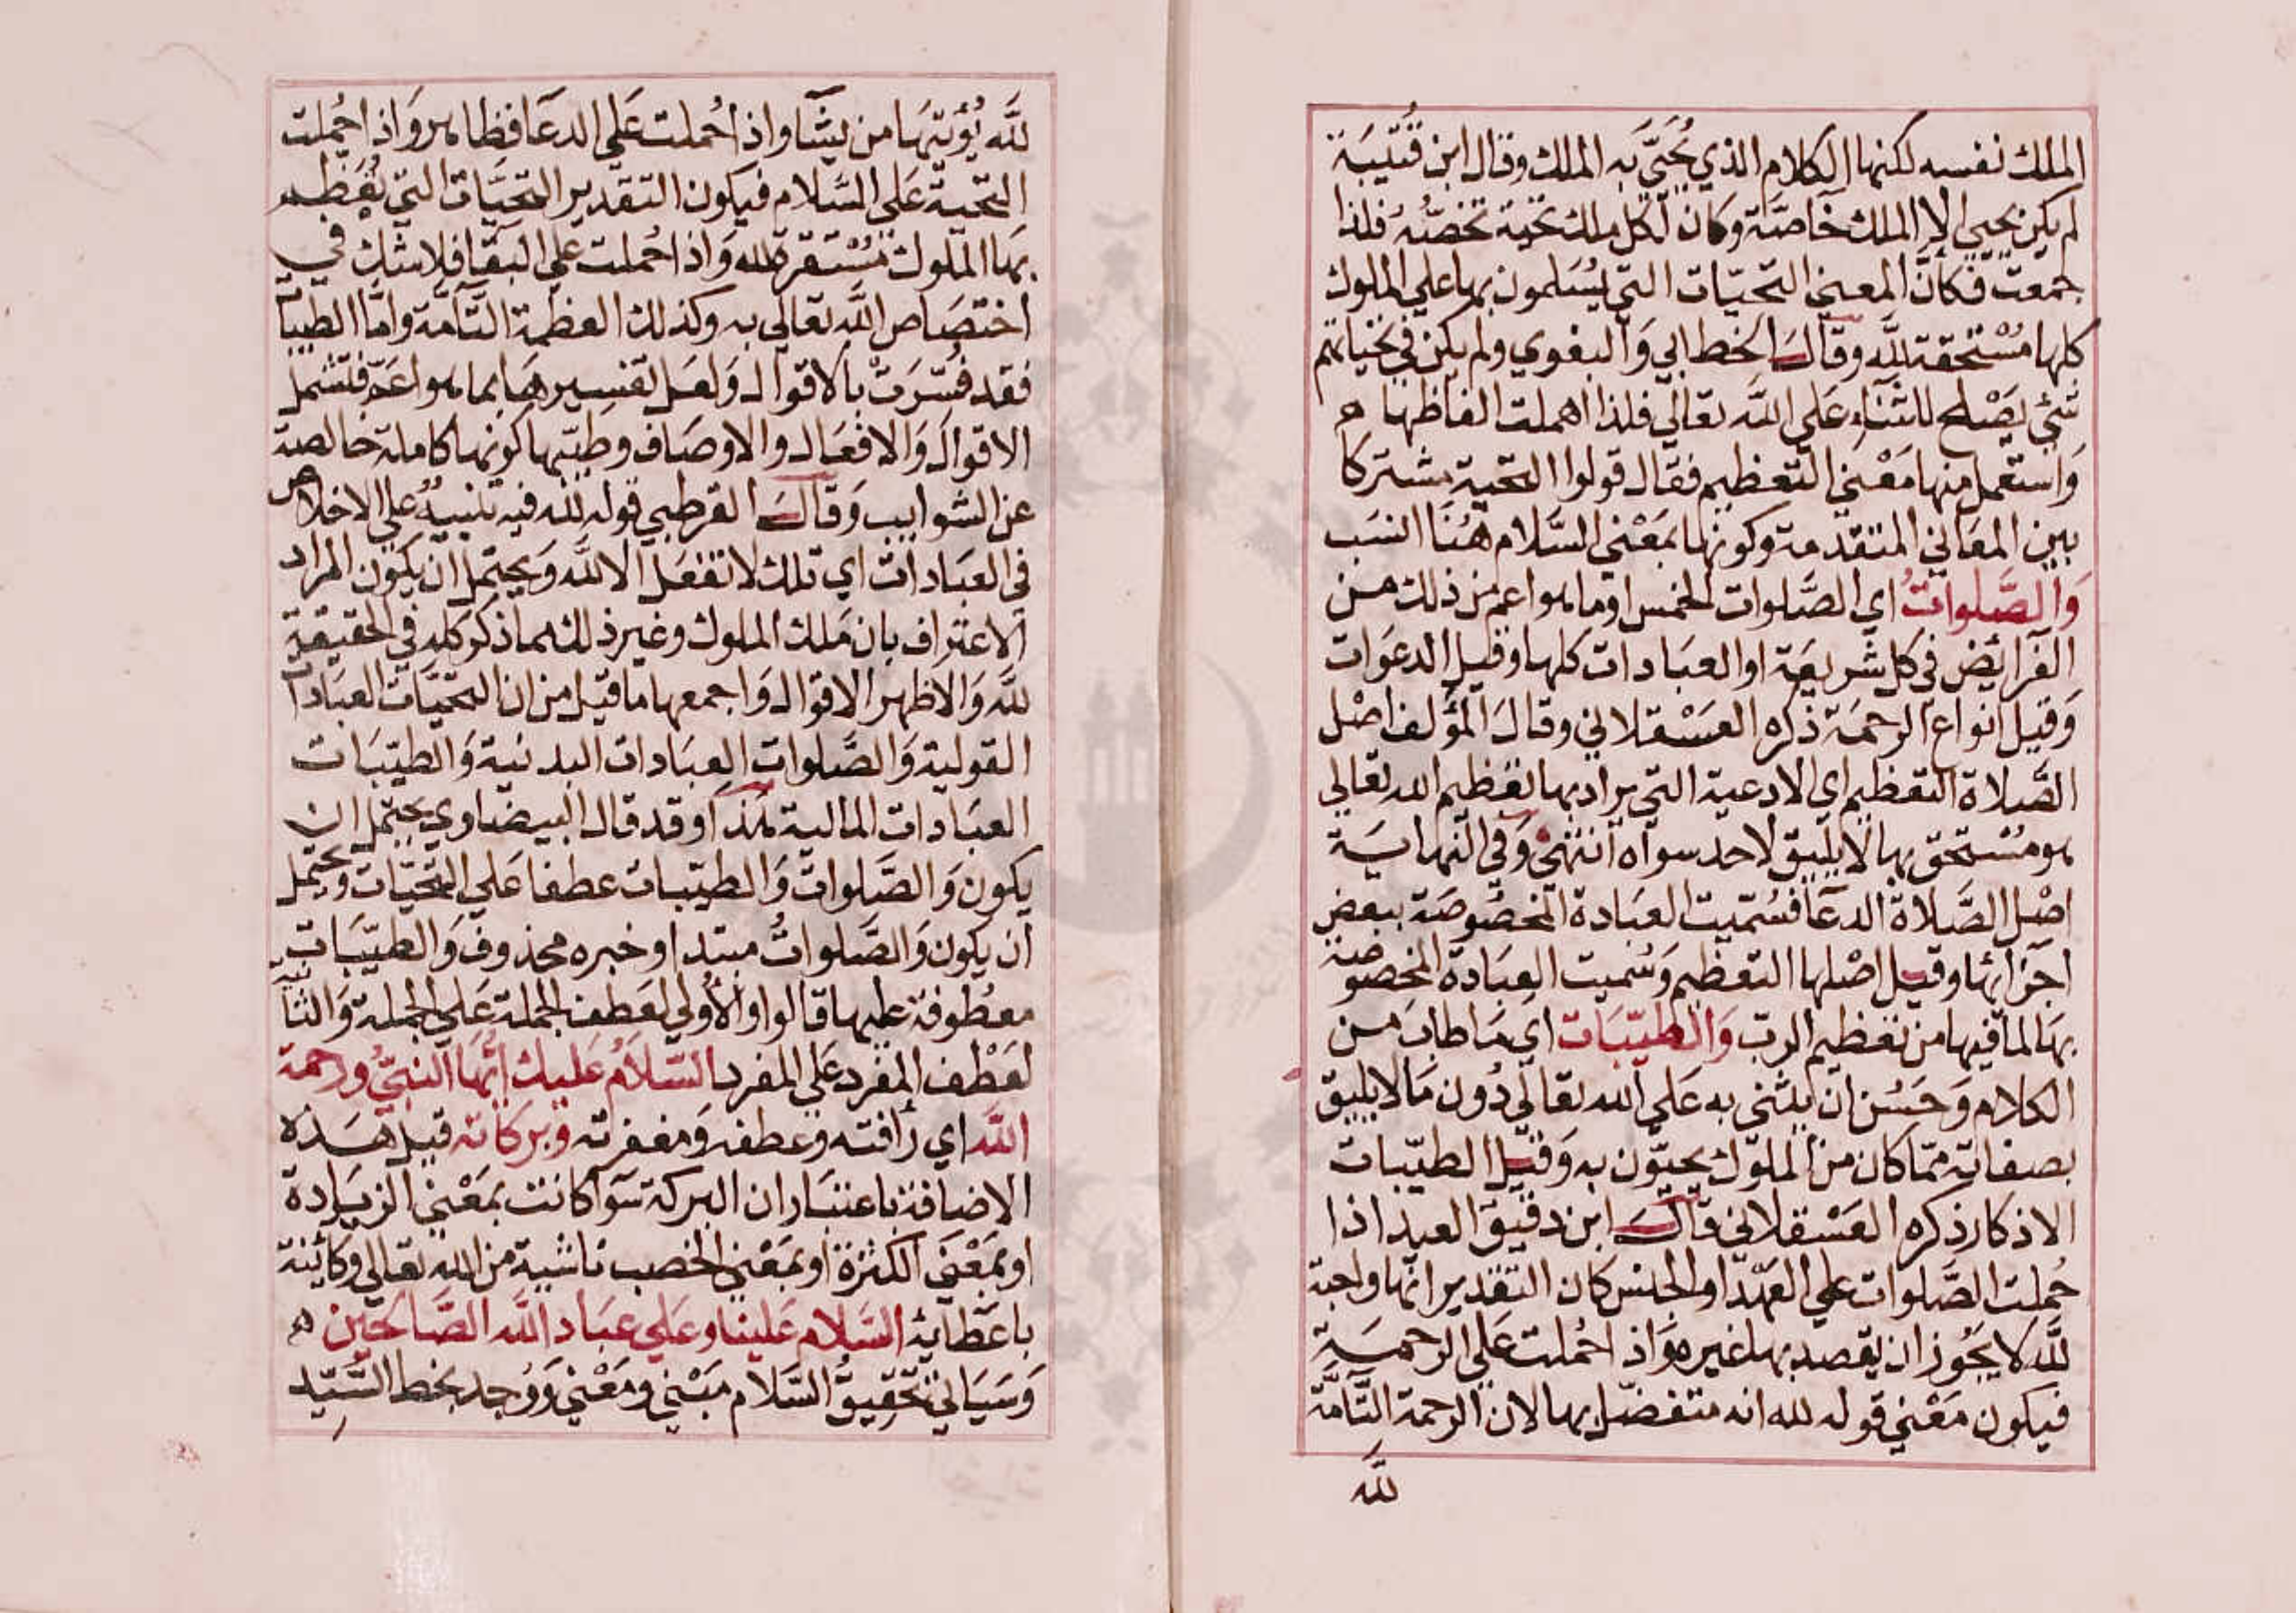 الملك نفسه لكنها الكلام الذي يُحَيَّى به الملك وقال ابن قُتَيبَة
لم يكن يحيي إلا الملك خاصّة وكان لكل ملك تحية تخصّه فلذا
جمعت فكانّ المعني التحيّات التي يُسَلمون بها علي الملوك
كلها مُسْتحقة للّه وقال الخطابي وَالبغوي ولم يكن في تحياتهم
شئ يَصْلح للثناء علي اللّه تعالي فلذا اهملت الفاظها
وَاستعمل منها مَعْني التعظيم فقال قولوا التحية مشتركا
بين المعَاني المتقدمة وكونها بمَعْني السّلام هُنا انسَب
وَالصّلواتُ اي الصّلوات الخمس او ما هو اعم من ذلك من
الفرائض في كل شريعَة او العبَادات كلها وقيل الدعَوات
وَقيل انواع الرحمَة ذكره العسْقلاني وقال المؤلف اصْل
الصّلاة التعظيم اي الادعية التي يراد بها تعظيم الله تعالي
هو مُسْتحق بها لا يليق لاحد سواه انتهيٰ وَفي النهايَة
اصْل الصَّلاة الدعَا فسُمّيت العبَادة المخصُوصَة ببعض
اجزائها وقيل اصْلها التعظيم وَسُميت العِبَادة المخصوصة
بهَا لما فيها من تعظيم الرب وَالطيّبَات اي مَا طابَ من
الكلام وَحَسُن ان يثني به عَلي الله تعالي دُون مَا لا يليق
بصفاته ممّا كان من الملوك يحيّون به وَقيل الطيّبات
الاذكار ذكره العَسْقلاني قال ابن دقيق العيد اذا
حُملت الصّلوات علي العهد او الجنس كان التقدير انّها واجبة
للّه لا يَجُوز ان يقصد بها غيره وَاذا حُملت عَلي الرحمَة
فيكون مَعْني قوله لله انه متفضّل بها لان الرحمة التّامّة
للّه
للّه يُؤتيهَا من يشا واذا حُملت عَلي الدعَا فظاهر وَاذا حُملت
التحية عَلي السَّلام فيكون التقدير التحِيَّات التي يُعَظم
بها الملوك مُسْتقرة للّه وَاذا حُملت علي البَقا فلا شك في
اختصَاص اللّه تعالي به وكذلك العظمة التّامَّة وامّا الطيبات
فقد فُسّرَتْ بالاقوال وَلعَل تفسيرهَا بما هو اعَمّ فتشمل
الاقوال وَالافعَال والاوصَاف وطيبها كونها كاملة خالصة
عن الشوايب وَقال القرطبي قوله للّه فيه تنبيهٌ علي الاخلاص
في العبَادات اي تلك لا تفعَل الا للّه وَيحتمل ان يكون المراد
الاعتراف بان مَلك الملوك وغير ذلك مما ذكر كله في الحقيقة
للّه وَالاظهر الاقوال وَاجمعها مَا قيل من ان التحيَّات العبَادات
القولية وَالصَّلوات العِبَادات البدنية وَالطيّبَات
العبَادات المالية هذا وقد قال البيضاوي يحتمل ان
يكون وَالصَّلوات وَالطيّبات عطفا عَلي التّحيّات ويحتمل
ان يكون وَالصَّلواتُ مبتدا وخبره محذوف وَالطيّبَات
معطوفة عليها قالواو الأولي لعَطف الجملة عَلي الجملة وَالثانية
لعَطْف المفرد عَلي المفرد السَّلامُ عَليك ايُّهَا النبيُّ ورحمة
اللّه اي رأفته وعطفه وَمغفرته وبركاته قيل هَذه
الاضافة باعتبَار ان البركة سَوَا كانت بمَعْني الزيَادة
او بمَعْني الكثرة او بمَعْني الخصب ناشية من الله تعالي وكائنة
باعَطائه السَّلام عَلينا وعَلي عبَاد اللّه الصَّالحين
وَسَيَاتي تحْقيقُ السَّلام مبْني ومَعْني وَوُجد بخط السَّيّد